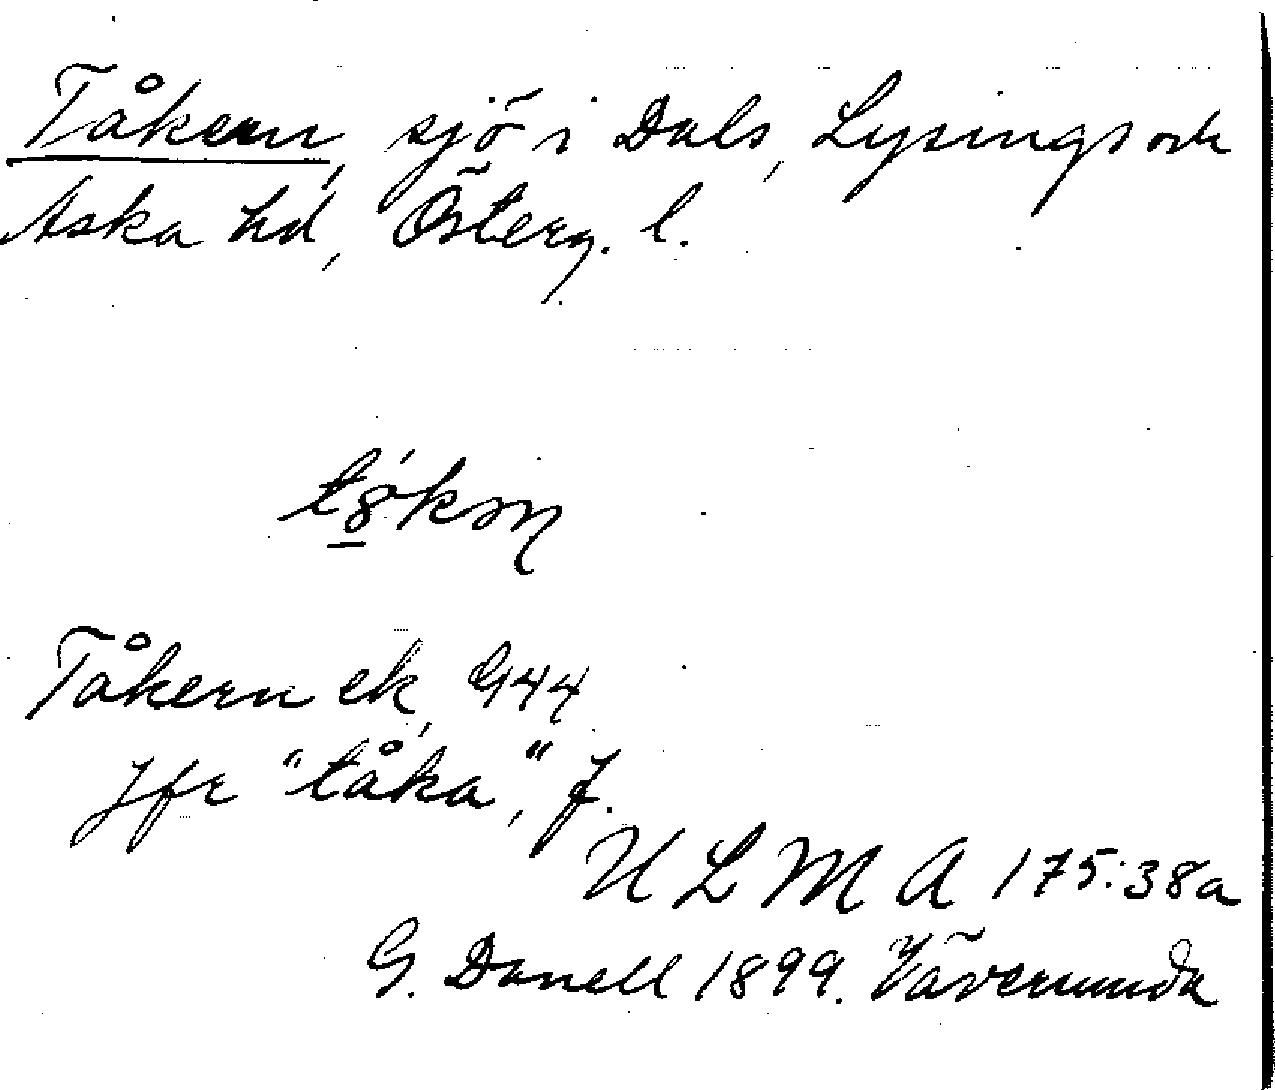 Tåkern, sjö i Dals, Lysings och
Aska hd, Österg. l.
Tåkern ek, G44
Jfr "tåka", f.
ULMA 175:38a
G. Danell 1899. Väversunda